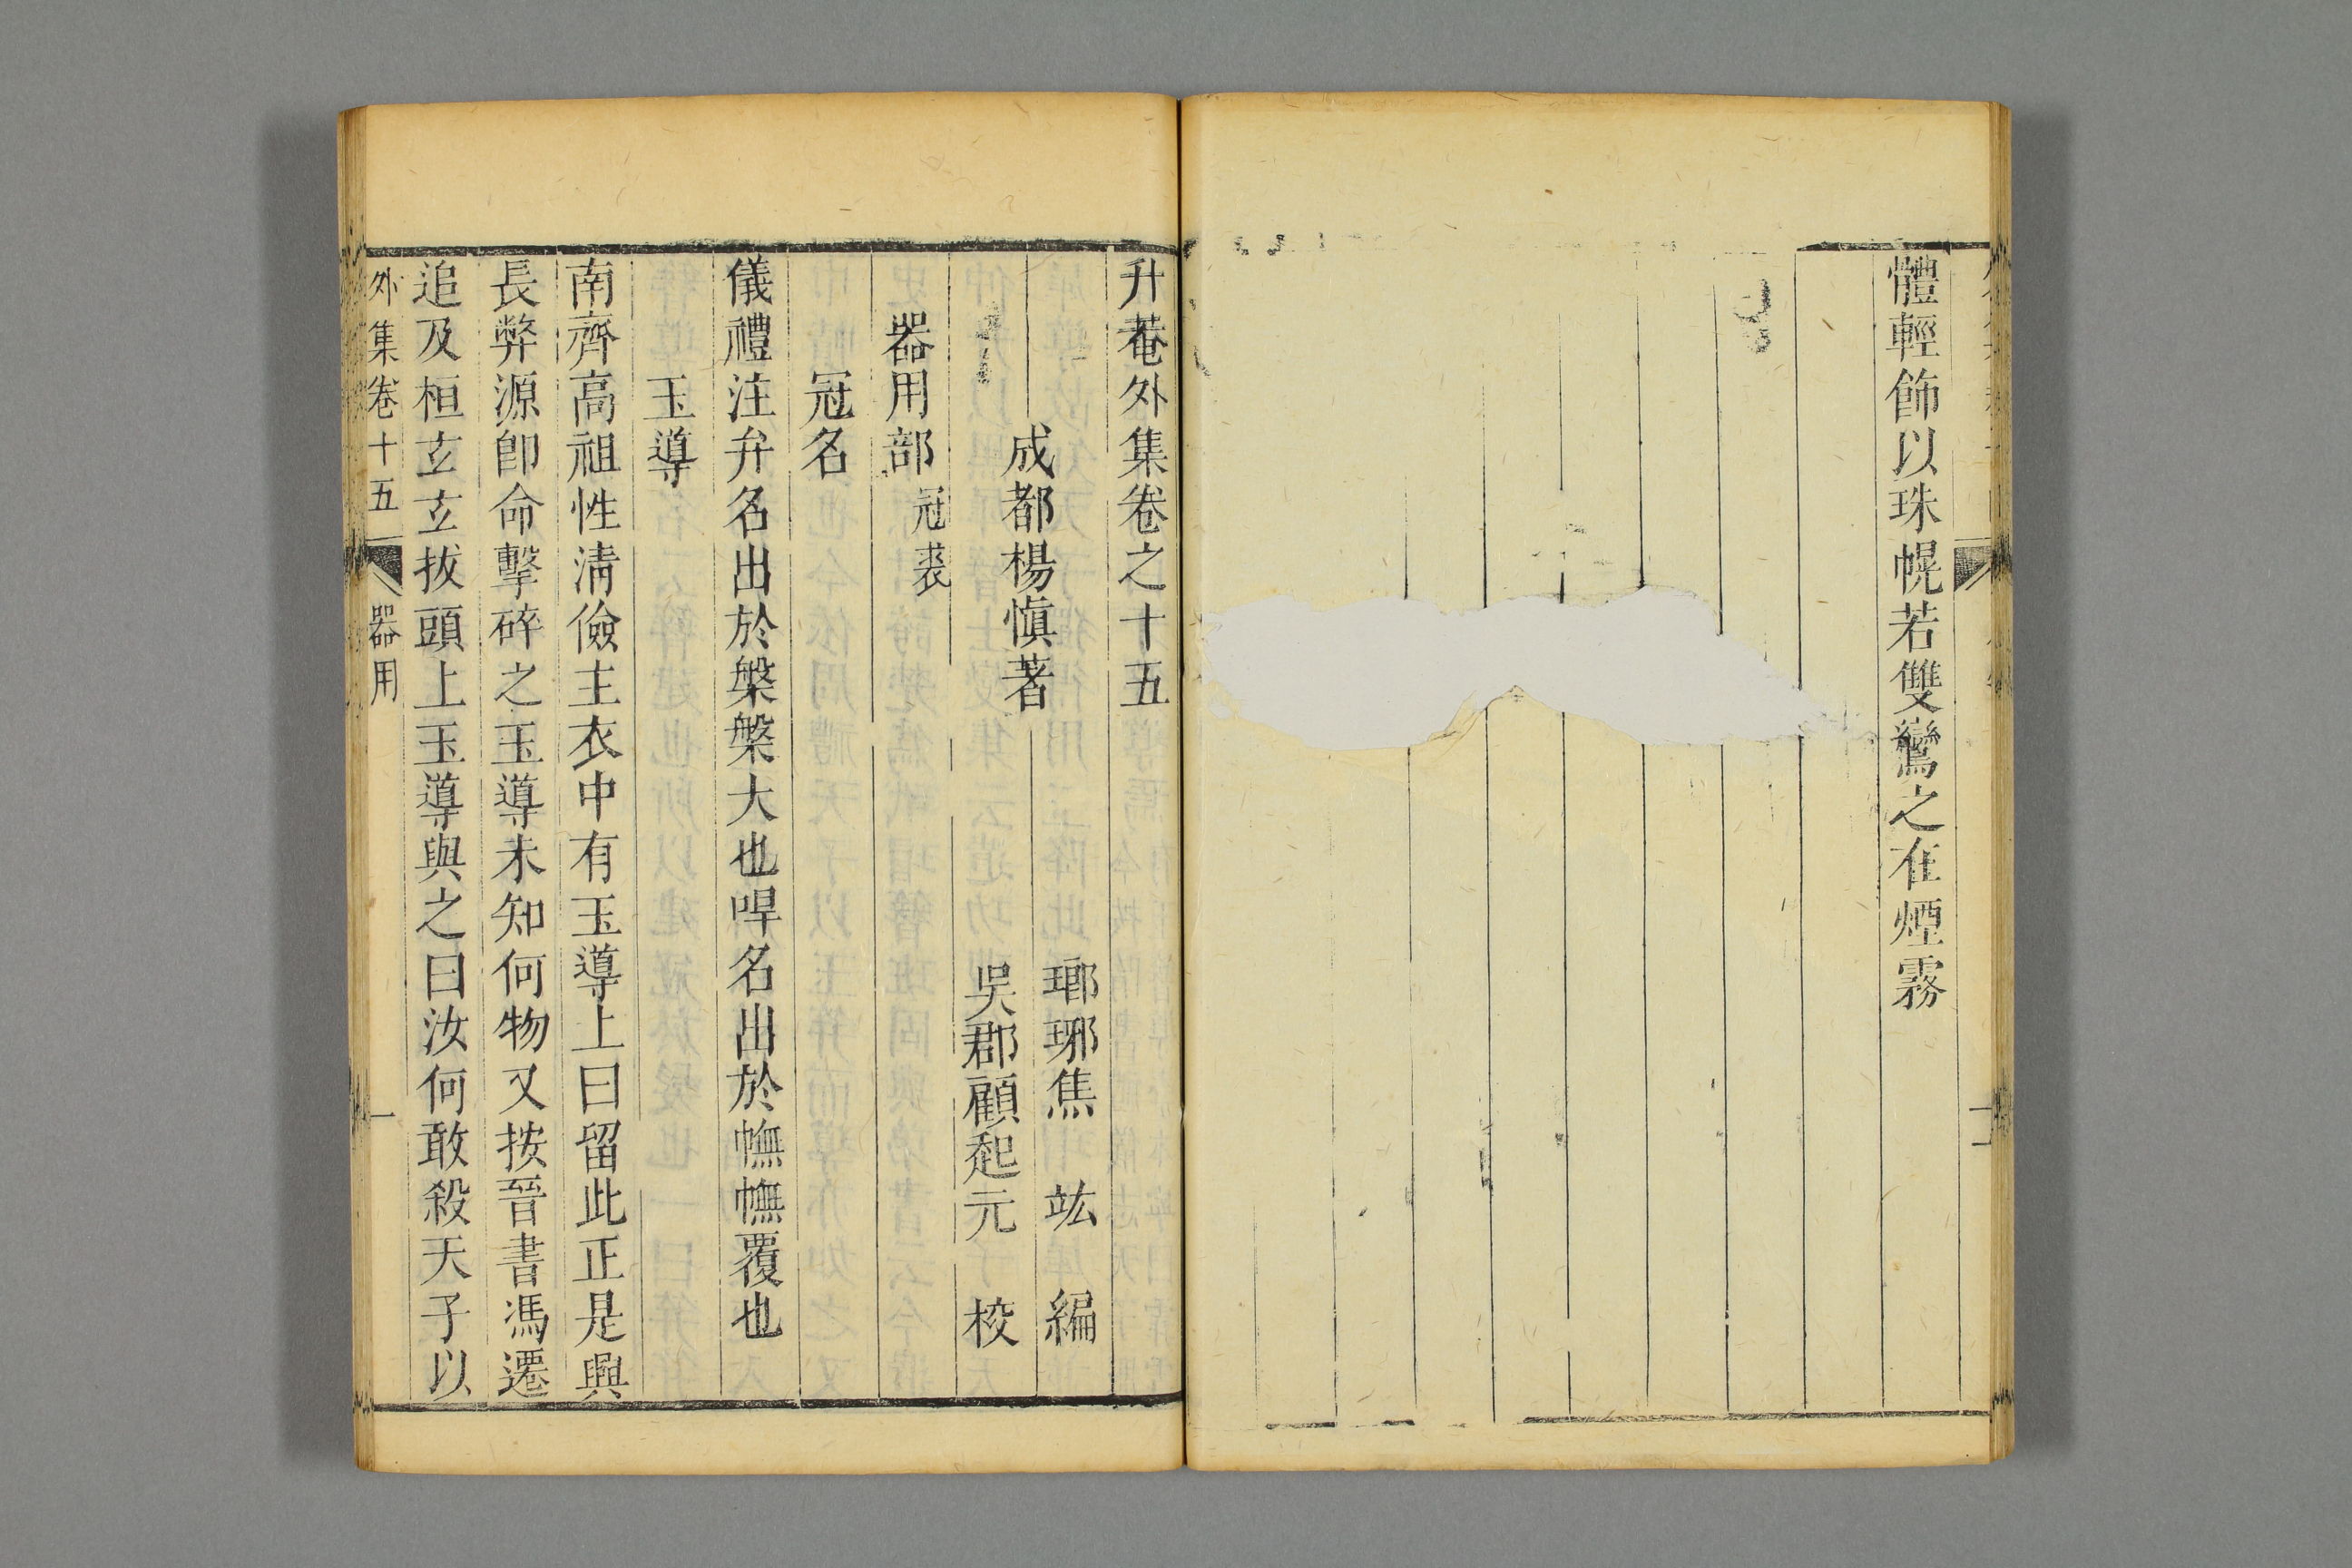 體輕飾以珠幌若雙鸞之在煙霧
升菴外集卷之十五
成都楊慎著
瑯琊焦竑編
吳郡顧起元校
器用部 冠裘
冠名
儀禮注弁名出於槃槃大也哻名出於幠幠覆也
玉導
南齊高祖性淸儉主衣中有玉導上曰留此正是興
長弊源卽命擊碎之玉導未知何物又按晉書馮遷
追及桓玄玄拔頭上玉導與之曰汝何敢殺天子以
外集卷十五 器用 一